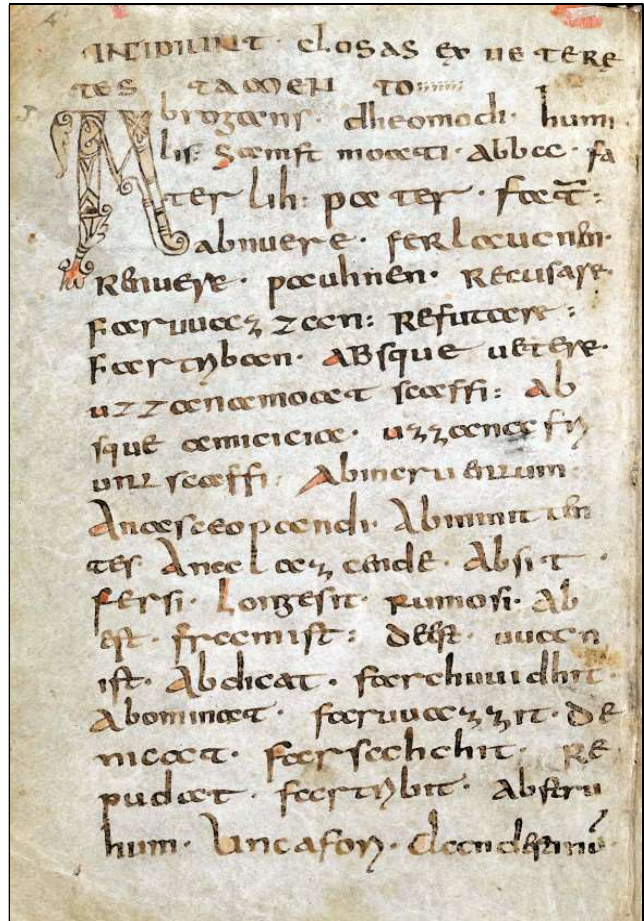 INCIPIUNT. CLOSAS EX UETERE
TES TAMEN TO
Abrogans. dheomodi. humi
lis: samft moati. abba. fa
ter lih: pater. fat̄:
abnuere. ferlaucnen.
Renuere. pauhnen. Recusare.
Faruuazzan: Refutare:
Fartriban. ABsque uetere.
uzzanamoat scaffi: Ab
sque amicicia. uzzana fri
unt scaffi: Abincruentum:
Anascaopandi. Abinnitten
tes Anaclazcende. Absit.
fersi. Longesit. rumosi. Ab
est. framist: deest. uuan
ist. Abdicat. farchuuidhit.
Abominat. faruuazzit. de
nicat. farsahchit. Re
pudat. fartribit. Absteru
hum. Uncafori.